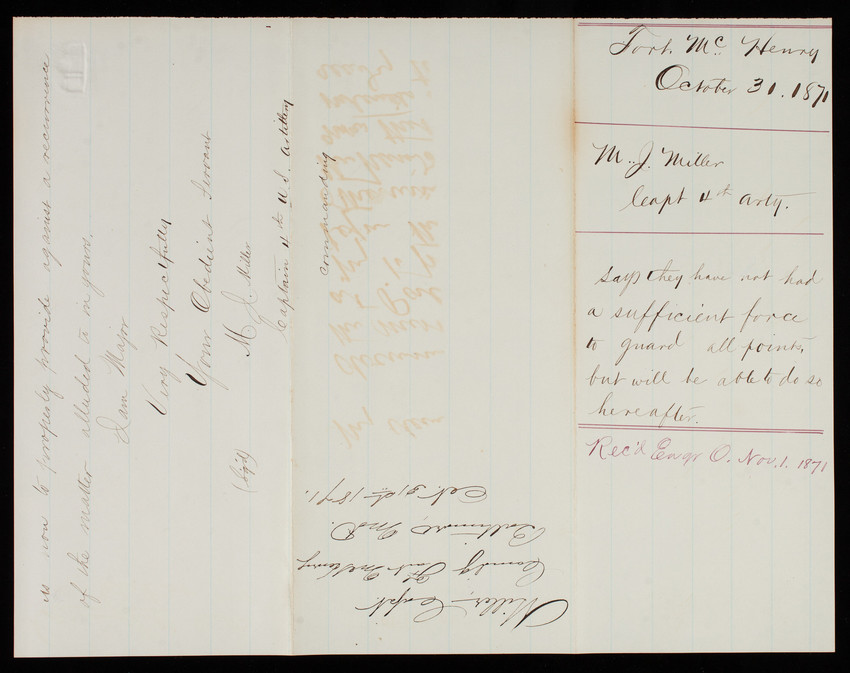 as now to properly provide against a recurrence
of the matter alluded to in yours.
I am Major
Very Respectfully
Your Obedient Servant
(Sg'd) M. J. Miller
Captain 4th U.S. Artillery
Commanding
Miller, Capt.
Comd'g Fort McHenry
Baltimore, Md.
Oct. 31st 1871.
Fort Mc Henry
October 31. 1871
M. J. Miller
Capt 4th Arty.
says they have not had
a sufficient force
to guard all points,
but will be able to do so
hereafter.
Rec'd Engr O. Nov. 1. 1871